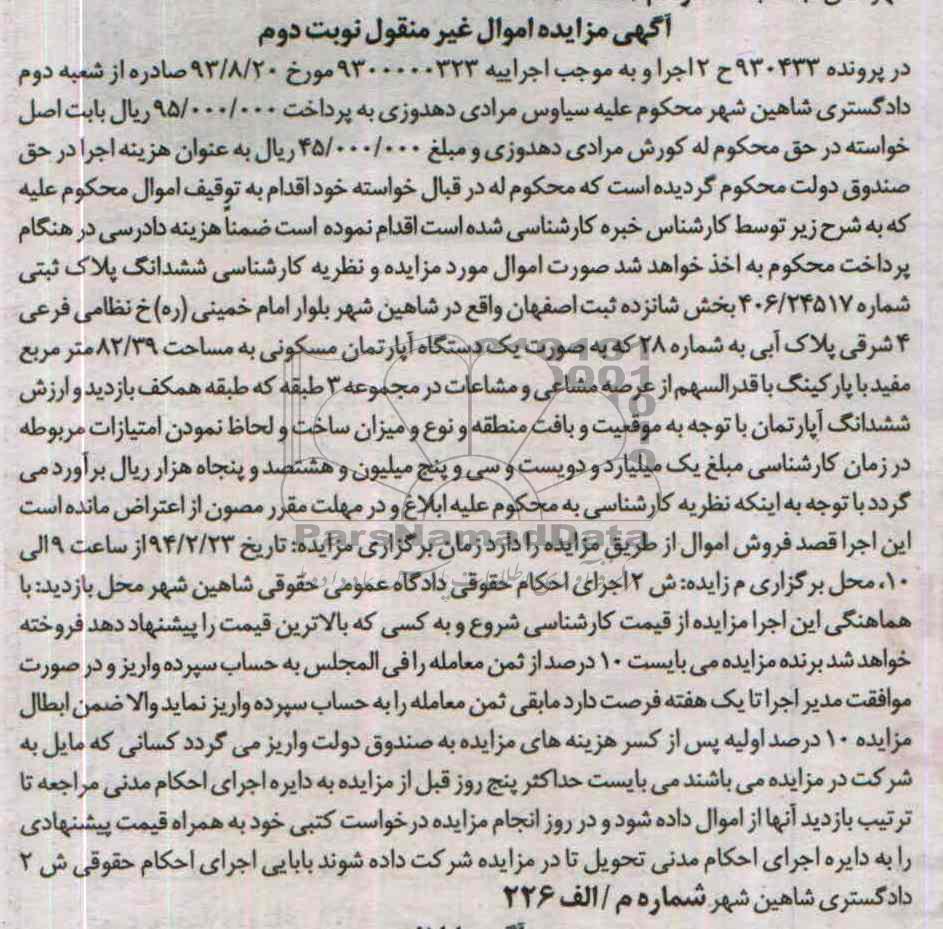 آگهی مزایده اموال غیر منقول نوبت دوم
در پرونده ۹۳۰۴۳۳ح ۲ اجرا و به موجب اجراییه ۹۳۰۰۰۰۰۳۲۳ مورخ ۹۳/۸/۲۰ صادره از شعبه دوم
دادگستری شاهین شهر محکوم علیه سیاوس مرادی دهدوزی به پرداخت ۹۵/۰۰۰/۰۰۰ ریال بابت اصل
خواسته در حق محکوم له کورش مرادی دهدوزی و مبلغ ۴۵/۰۰۰/۰۰۰ ریال به عنوان هزینه اجرا در حق
صندوق دولت محکوم گردیده است که محکوم له در قبال خواسته خود اقدام به توقیف اموال محکوم علیه
که به شرح زیر توسط کارشناس خبره کارشناسی شده است اقدام نموده است ضمناً هزینه دادرسی در هنگام
پرداخت محکوم به اخذ خواهد شد صورت اموال مورد مزایده و نظریه کارشناسی ششدانگ پلاک ثبتی
شماره ۴۰۶/۲۴۵۱۷ بخش شانزده ثبت اصفهان واقع در شاهین شهر بلوار امام خمینی (ره) خ نظامی فرعی
۴ شرقی پلاک آبی به شماره ۲۸ که به صورت یک دستگاه آپارتمان مسکونی به مساحت ۸۲/۳۹ متر مربع
مفید با پارکینگ با قدرالسهم از عرصه مشاعی و مشاعات در مجموعه ۳ طبقه که طبقه همکف بازدید و ارزش
ششدانگ آپارتمان با توجه به موقعیت و بافت منطقه و نوع و میزان ساخت و لحاظ نمودن امتیازات مربوطه
در زمان کارشناسی مبلغ یک میلیارد و دویست و سی و پنج میلیون و هشتصد و پنجاه هزار ریال برآورد می
گردد با توجه به اینکه نظریه کارشناسی به محکوم علیه ابلاغ و در مهلت مقرر مصون از اعتراض مانده است
این اجرا قصد فروش اموال از طریق مزایده را دارد زمان برگزاری مزایده: تاریخ ۹۴/۲/۲۳ از ساعت ۹ الی
۱۰، محل برگزاری م زایده: ش ۲ اجرای احکام حقوقی دادگاه عمومی حقوقی شاهین شهر محل بازدید: با
هماهنگی این اجرا مزایده از قیمت کارشناسی شروع و به کسی که بالاترین قیمت را پیشنهاد دهد فروخته
خواهد شد برنده مزایده می بایست ۱۰ درصد از ثمن معامله را فی المجلس به حساب سپرده واریز و در صورت
موافقت مدیر اجرا تا یک هفته فرصت دارد مابقی ثمن معامله را به حساب سپرده واریز نماید والا ضمن ابطال
مزایده ۱۰ درصد اولیه پس از کسر هزینه های مزایده به صندوق دولت واریز می گردد کسانی که مایل به
شرکت در مزایده می باشند می بایست حداکثر پنج روز قبل از مزایده به دایره اجرای احکام مدنی مراجعه تا
ترتیب بازدید آنها از اموال داده شود و در روز انجام مزایده درخواست کتبی خود به همراه قیمت پیشنهادی
را به دایره اجرای احکام مدنی تحویل تا در مزایده شرکت داده شوند بابایی اجرای احکام حقوقی ش ۲
دادگستری شاهین شهر شماره م / الف ۲۲۶
ParsNamadData